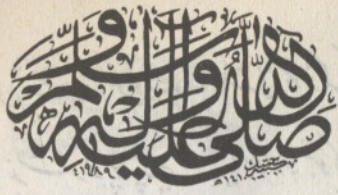 صلى الله عليه وآله وسلم